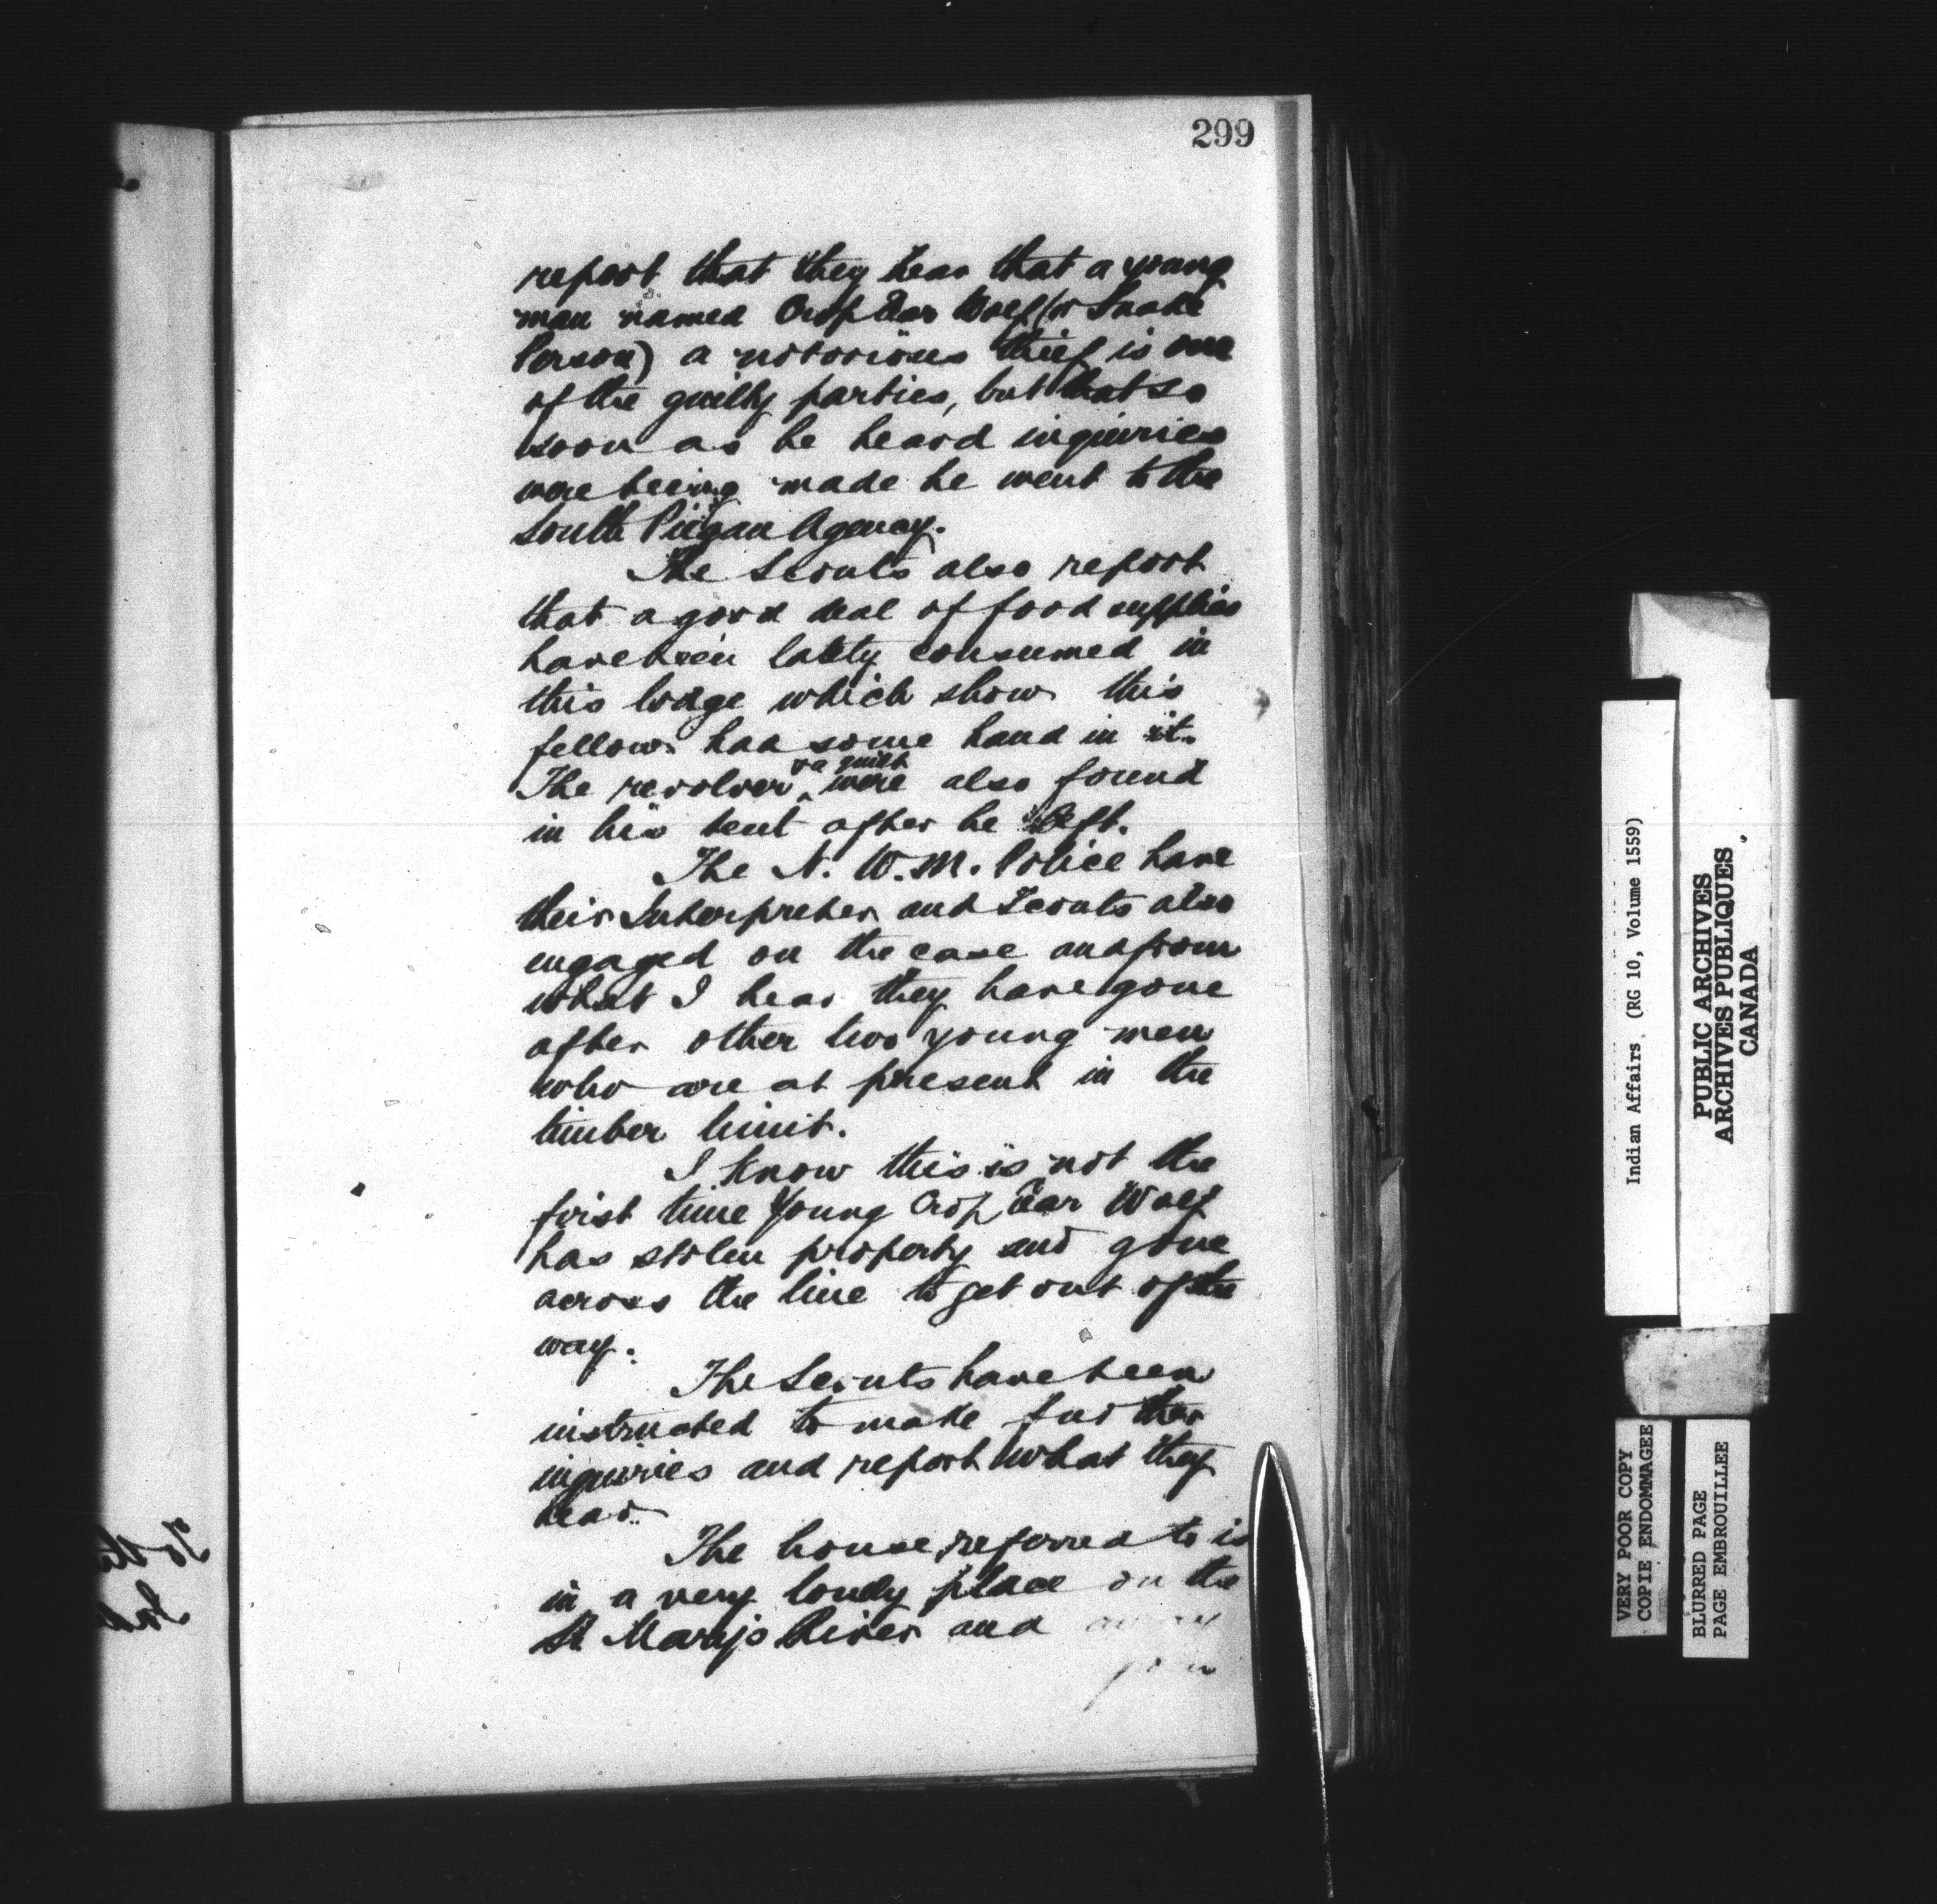 299
report that they hear that a young
man named Crop Ear Wolf (or Snake
Person) a notorious thief is one
of the guilty parties, but that so
soon as he heard inquiries
were being made he went to the
South Piegan Agency.
The Scouts also report
that a good deal of food supplies
have been lately consumed in
this lodge which show this
fellow had some hand in it.
The revolver & a quilt were also found
in his tent after he left.
The N. W. M. Police have
their Interpreter and Scouts also
engaged on the case and from
what I hear they have gone
after other two young men
who are at present in the
timber limit.
I know this is not the
first time Young Crop Ear Wolf
has stolen property and gone
across the line to get out of the
way.
The Scouts have been
instructed to make further
inquiries and report what they
hear.
The house referred to is
in a very lonely place on the
St Mary's River and
Indian Affairs. (RG 10, Volume 1559)
PUBLIC ARCHIVES
ARCHIVES PUBLIQUES
CANADA
VERY POOR COPY
COPIE ENDOMMAGEE
BLURRED PAGE
PAGE EMBROUILLEE